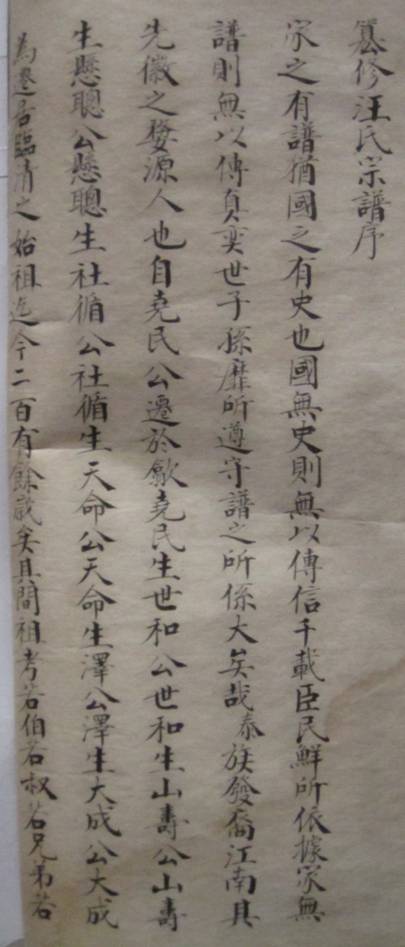 纂修汪氏宗譜序
家之有譜猶國之有史也國無史則無以傳信千載臣民鮮所依據家無
譜則無以傳負奕世子孫靡所遵守譜之所係大矣哉忝族發裔江南其
先徽之婺源人也自堯民公遷於歙堯民生世和公世和生山壽公山壽
生懸聰公懸聰生社循公社循生天命公天命生澤公澤生大成公大成
為遷居臨清之始祖迄今二百有餘歲矣其間祖考若伯若叔若兄弟若